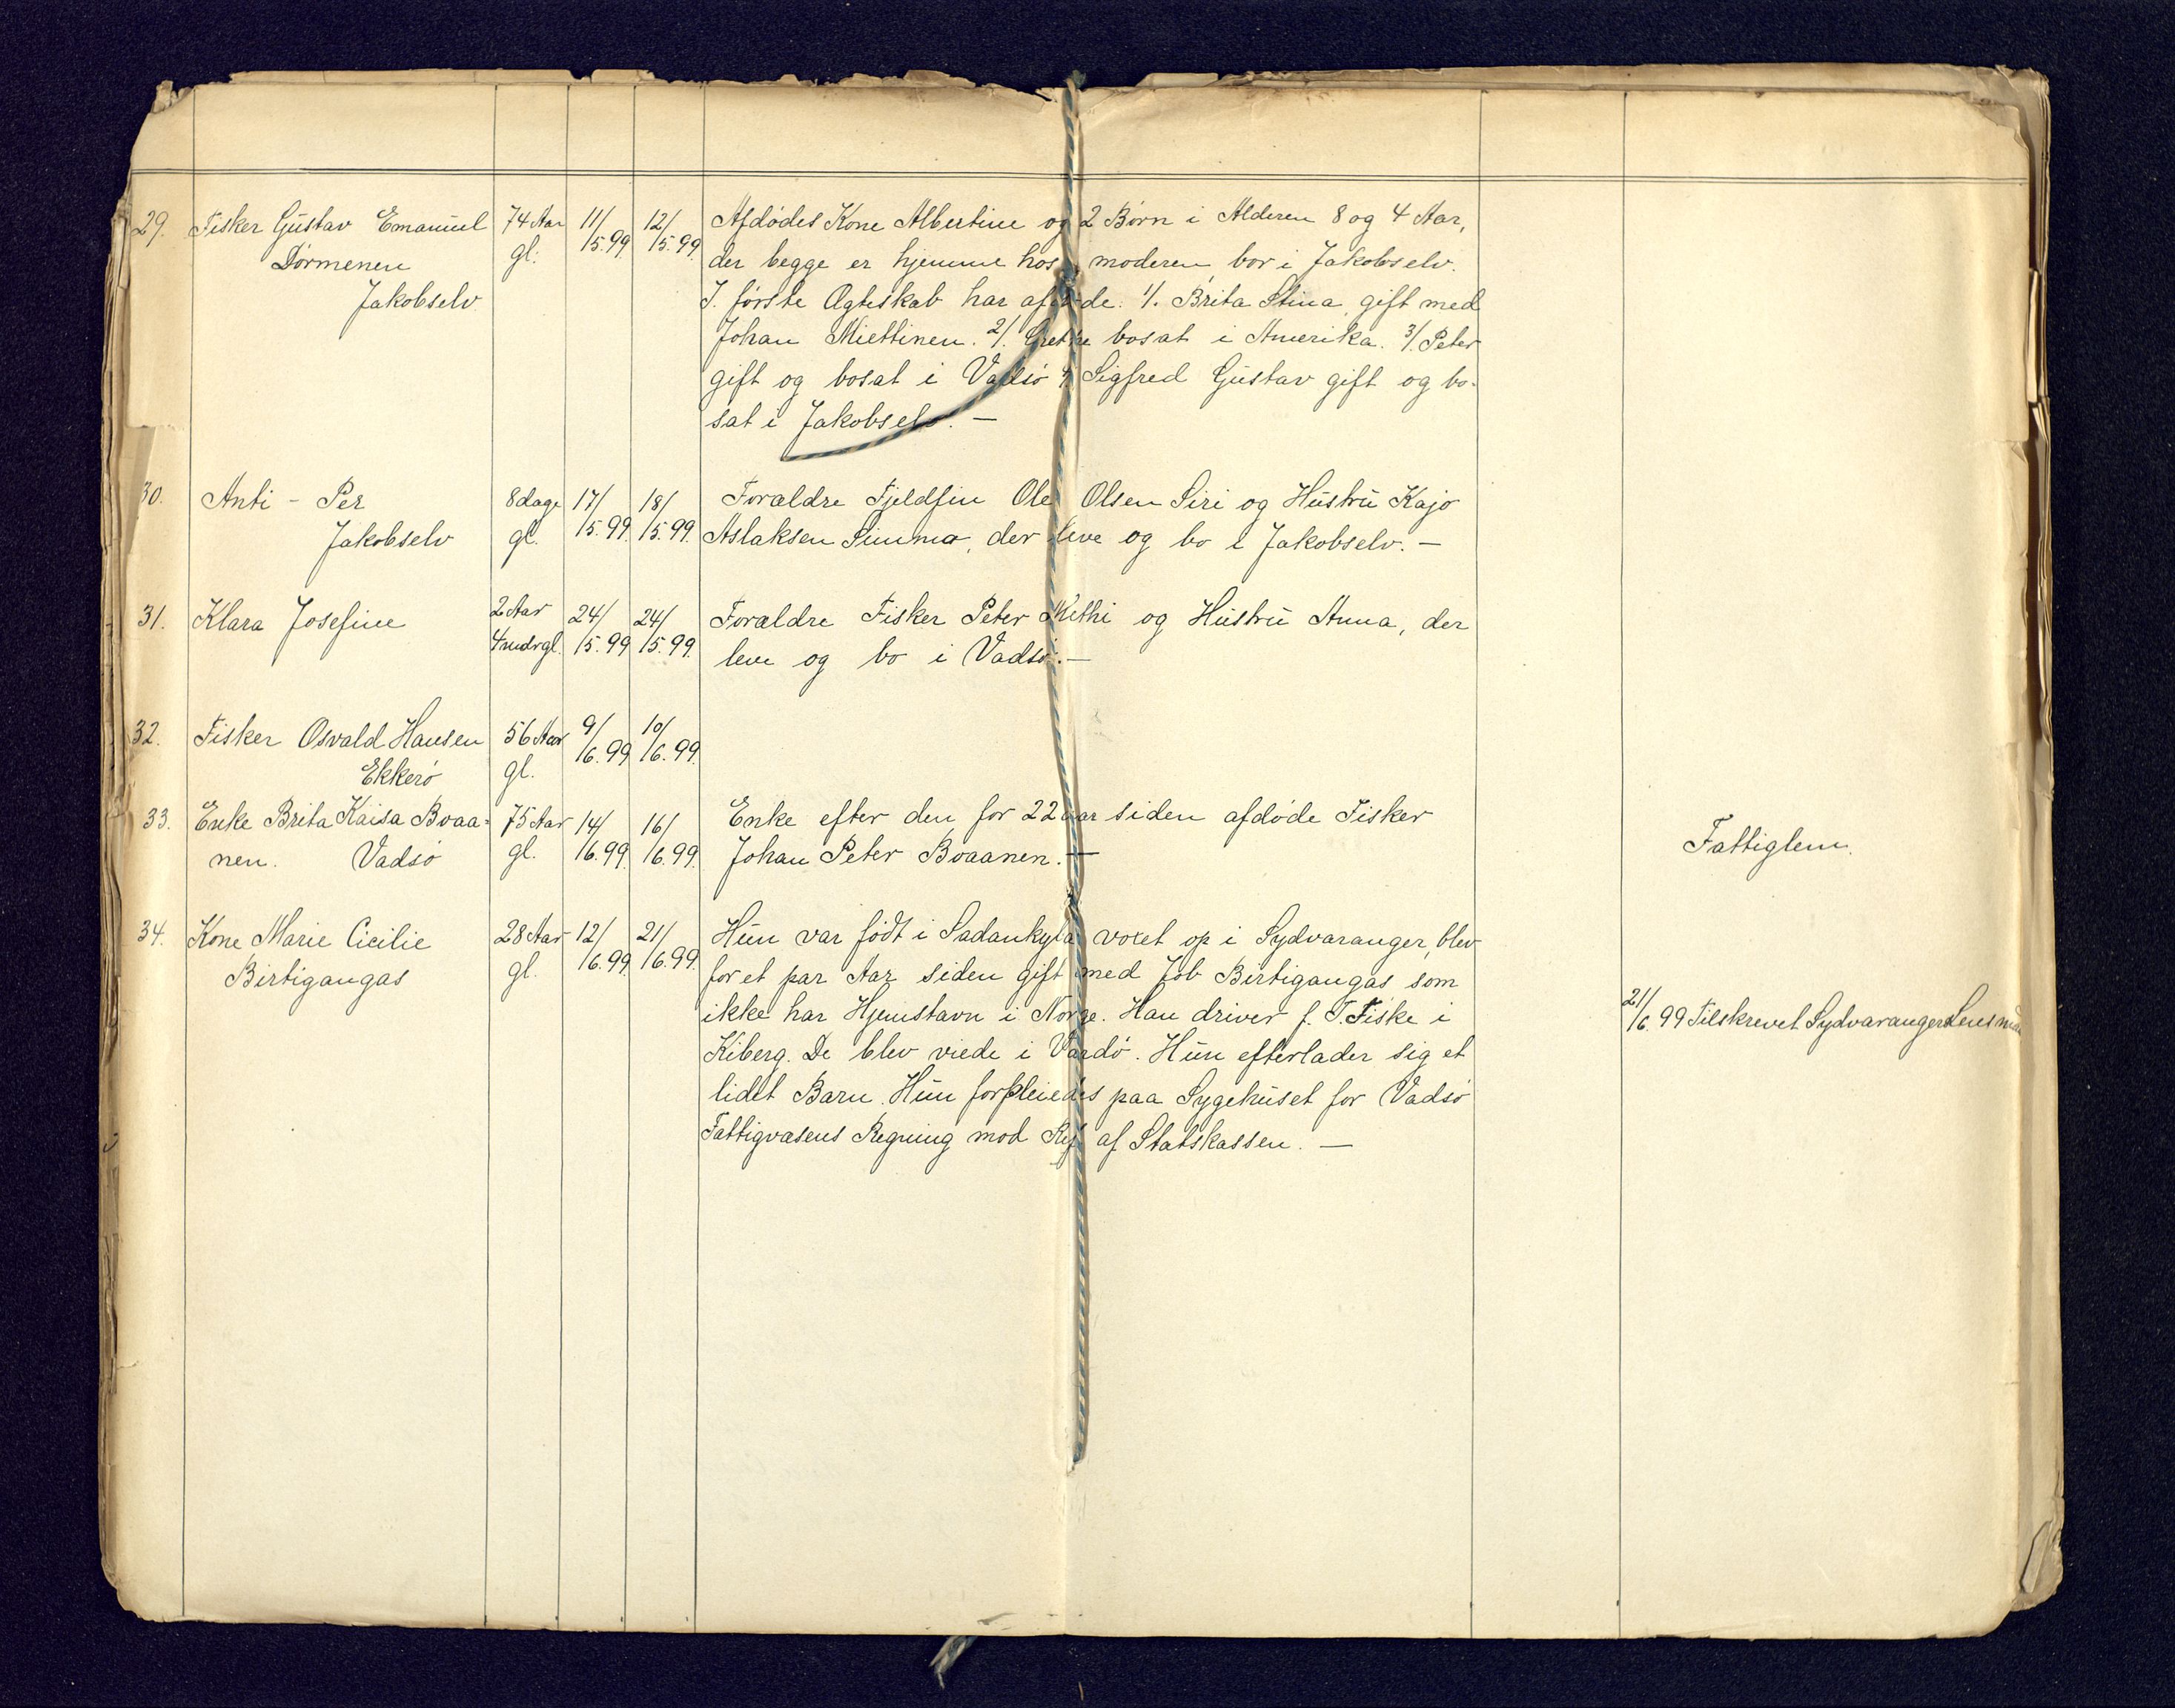 29. Fisker Gustav Emanuel 74 Aar 11/5.99 12/5.99 Afdødes Kone Albertine og 2 Børn i Alderen 8 og 4 Aar,
Dørmenen gl. der begge er hjemme hos moderen bor i Jakobselv.
Jakobselv I første Ægteskab har afdøde: 1/. Brita Stina, gift med
Johan Miettinen. 2/. Grethe bosat i Amerika. 3/. Peter
gift og bosat i Vadsö 4/. Sigfred Gustav gift og bo-
sat i Jakobselv. —
30. Anti - Per 8 dage 17/5.99 18/5.99 Forældre Fjeldfin Ole Olsen Siri og Hustru Kajo
Jakobselv gl. Aslaksen Simma, der leve og bo i Jakobselv. —
31. Klara Josefine 2 Aar 24/5.99 24/5.99 Forældre Fisker Peter og Hustru Anna, der
4 mdr gl. leve og bo i Vadsö. —
32. Fisker Osvald Hansen 56 Aar 9/6.99 10/6.99
Ekkerö gl.
33. Enke Brita Kaisa Boaa= 75 Aar 14/6.99 16/6.99 Enke efter den for 22 aar siden afdøde Fisker
nen. Vadsö gl. Johan Peter Boaanen. — Fattiglem.
34. Kone Marie Cicilie 28 Aar 12/6.99 21/6.99 Hun var født i Sadankyla voxet op i Sydvaranger, blev
Birtigangas gl. for et par Aar siden gift med Job Birtigangas som
ikke har Hjemstavn i Norge. Han driver f. T. Fiske i 21/6.99 Tilskrevet Sydvaranger Lensman
Kiberg. De blev viede i Vardö. Hun efterlader sig et
lidet Barn. Hun forpleiedes paa Sygehuset for Vadsö
Fattigvæsens Regning mod Ref. af Statskassen. —